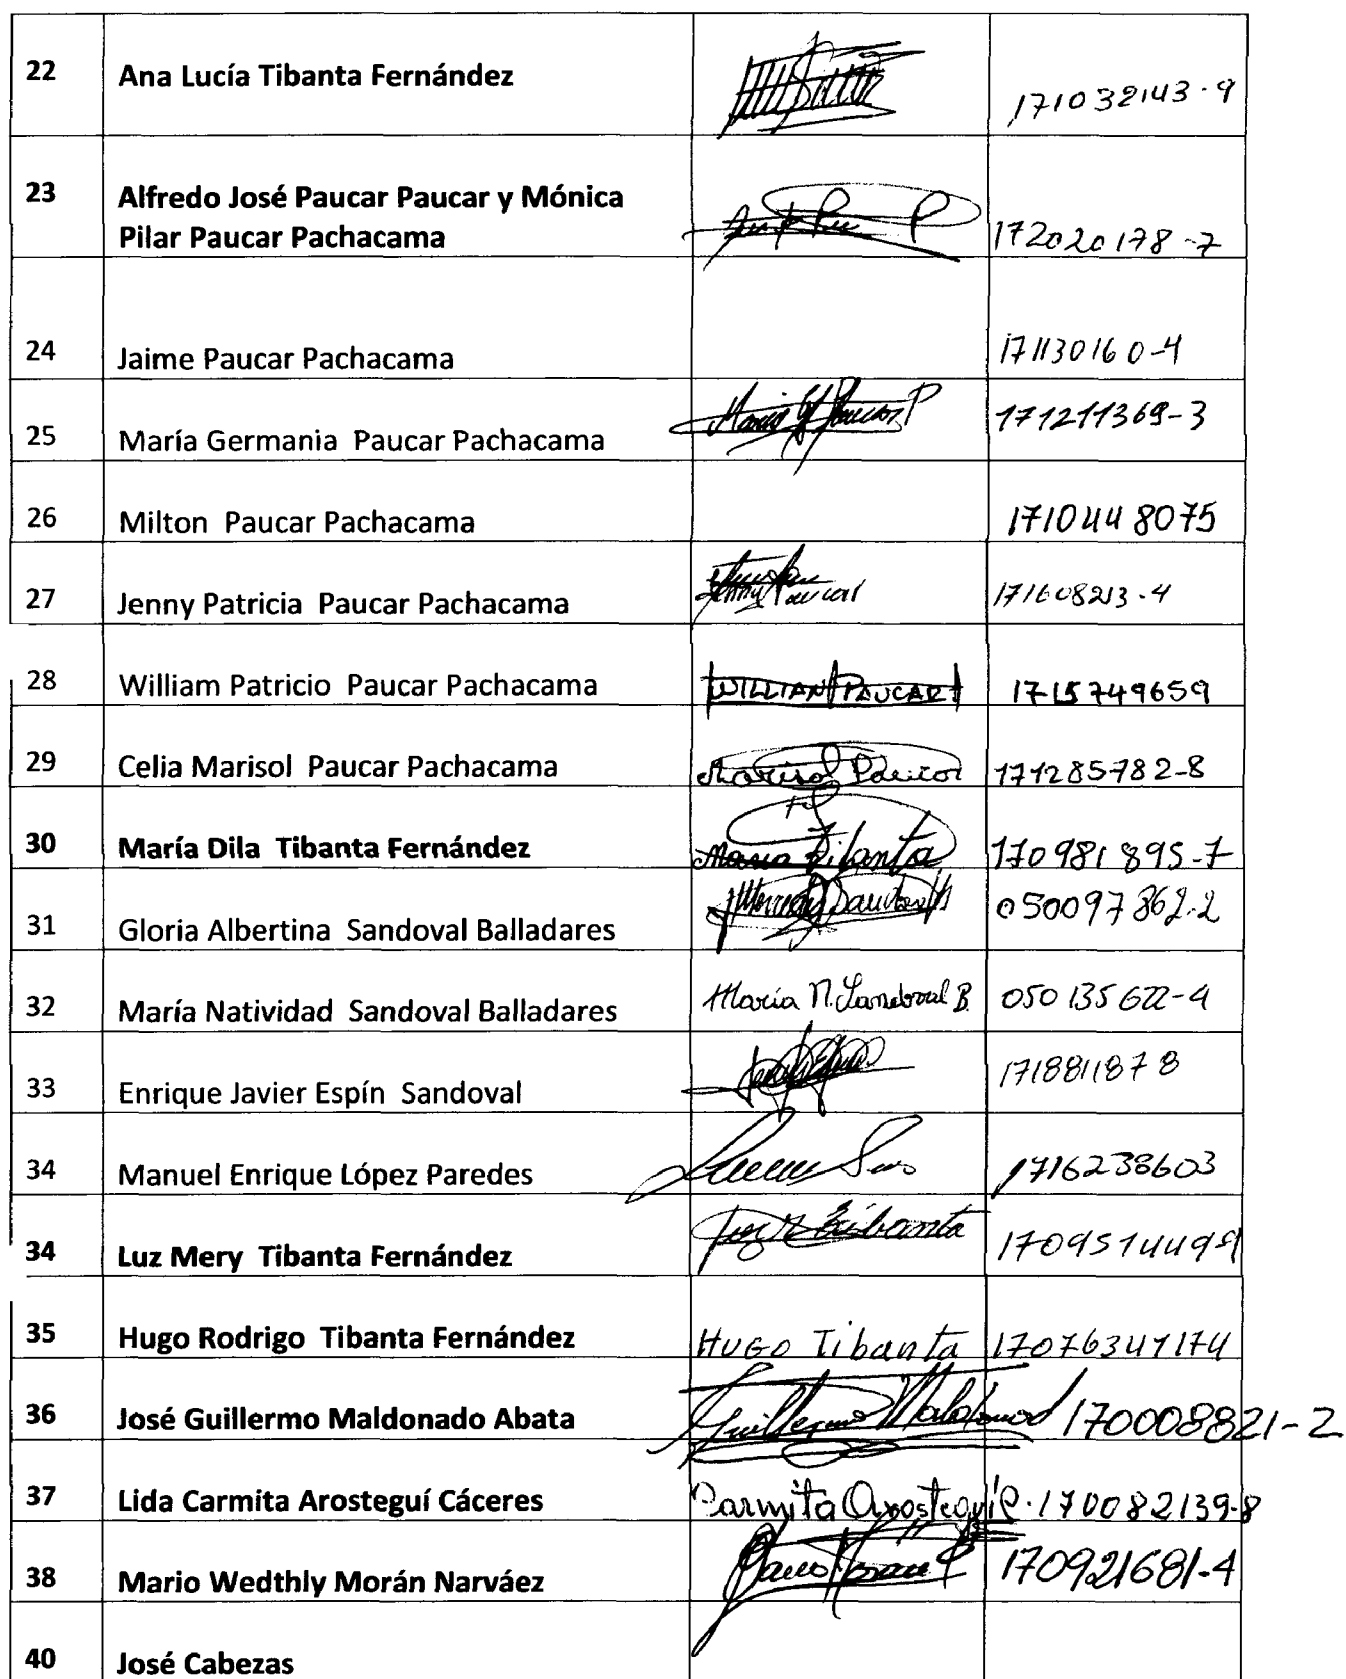 22 Ana Lucía Tibanta Fernández 171032143-9
23 Alfredo José Paucar Paucar y Mónica
Pilar Paucar Pachacama 172020178-7
24 Jaime Paucar Pachacama 171130160-4
25 María Germania Paucar Pachacama Maria G Paucar P 171211369-3
26 Milton Paucar Pachacama 1710448075
27 Jenny Patricia Paucar Pachacama Jenny Paucar 171608213-4
28 William Patricio Paucar Pachacama WILLIAN PAUCAR 1715749659
29 Celia Marisol Paucar Pachacama Marisol Paucar 171285782-8
30 María Dila Tibanta Fernández Maria Tibanta 170981895-7
31 Gloria Albertina Sandoval Balladares 050097862-2
32 María Natividad Sandoval Balladares María N. Sandoval B. 050135622-4
33 Enrique Javier Espín Sandoval 1718811878
34 Manuel Enrique López Paredes 1716238603
34 Luz Mery Tibanta Fernández Luz M Tibanta 1709514499
35 Hugo Rodrigo Tibanta Fernández HUGO Tibanta 17076347174
36 José Guillermo Maldonado Abata Guillermo Maldonado 170008821-2
37 Lida Carmita Arosteguí Cáceres Carmita Arosteguí C. 170082139-8
38 Mario Wedthly Morán Narváez 170921681-4
40 José Cabezas